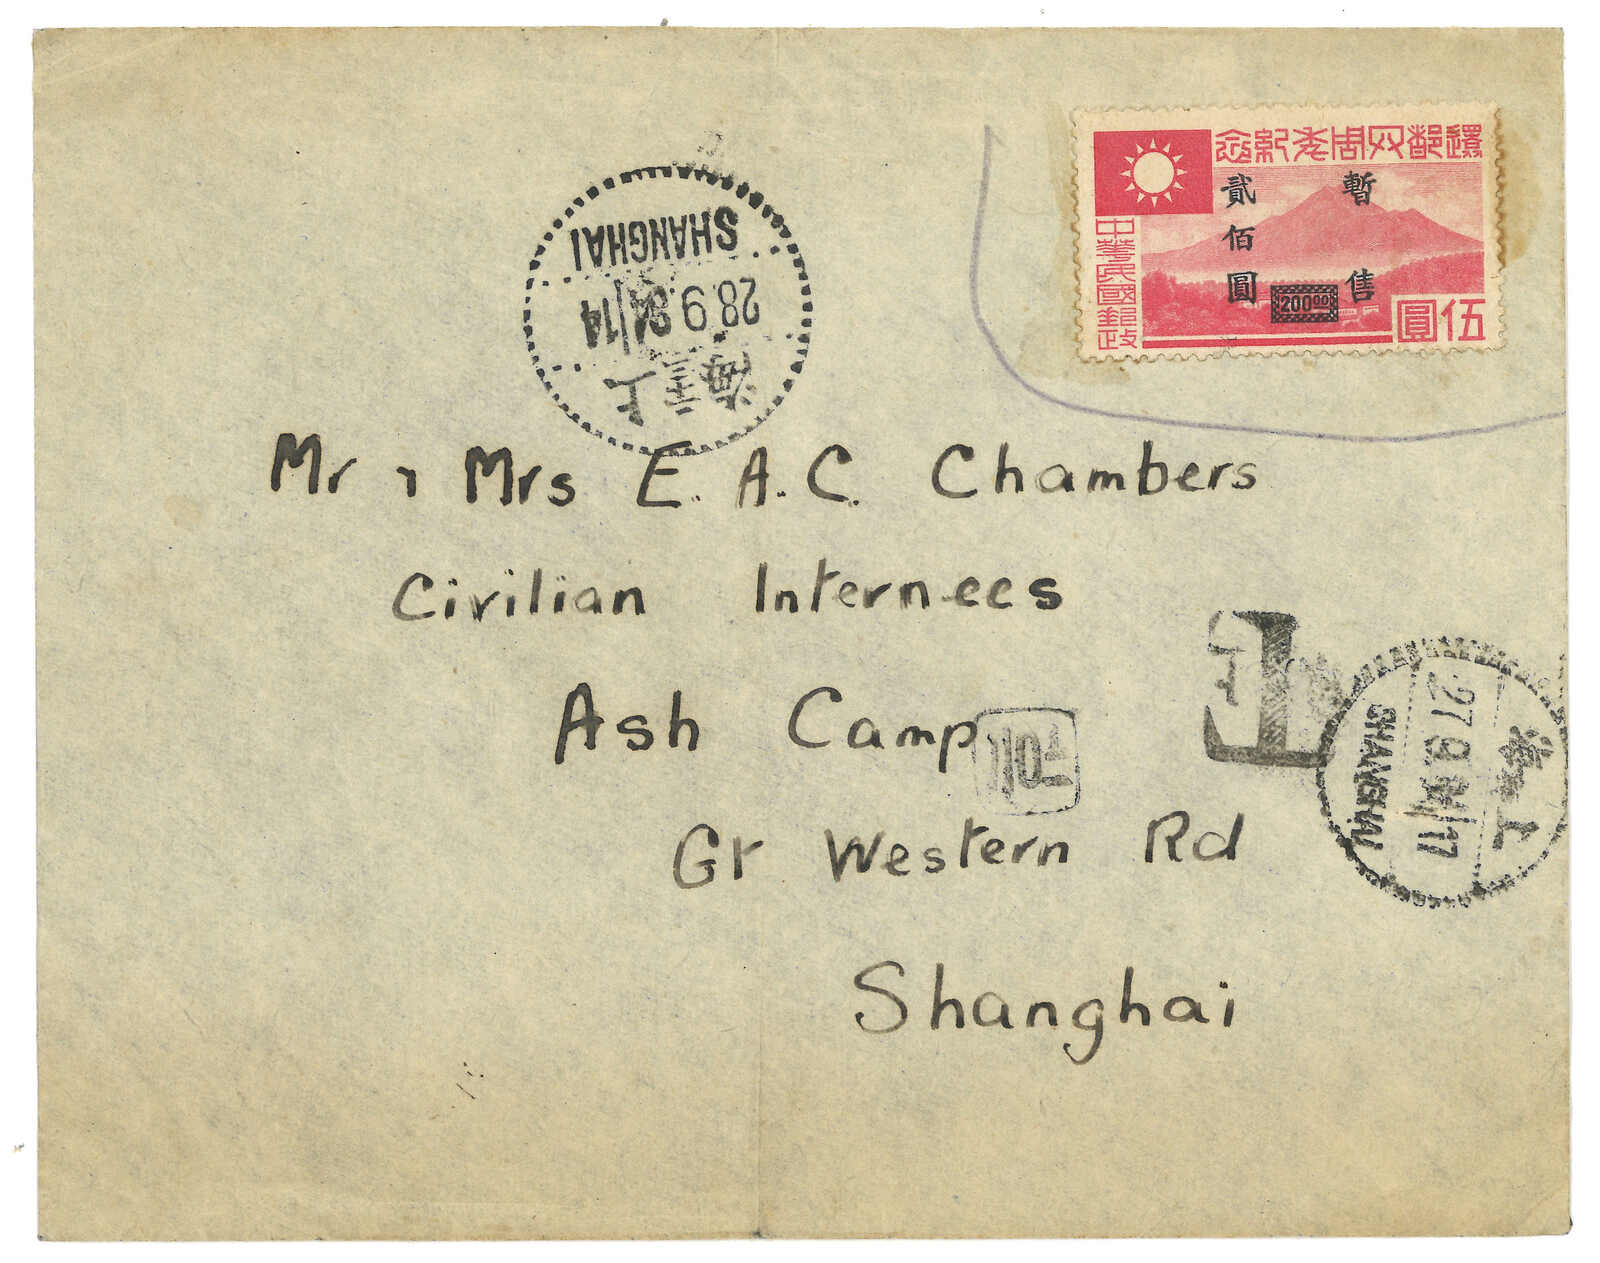 還都四周年紀念
中華民國郵政
暫售
貳佰圓
200.00
伍圓
SHANGHAI
28.9.34|14
上海
Mr & Mrs E. A. C. Chambers
Civilian Internees
Ash Camp
Gt Western Rd
Shanghai
T
上海
27.9.34|17
SHANGHAI